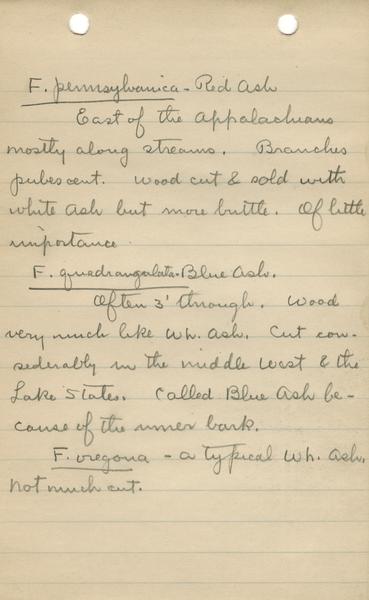 F. pennsylvanica - Red Ash
East of the Appalachians
mostly along streams. Branches
pubescent. Wood cut & sold with
white ash but more brittle. Of little
importance.
F. quadrangulata - Blue Ash.
Often 3' through. Wood
very much like Wh. Ash. Cut con-
siderably in the middle West & the
Lake States. Called Blue Ash be-
cause of the inner bark.
F. oregona - a typical Wh. Ash.
Not much cut.